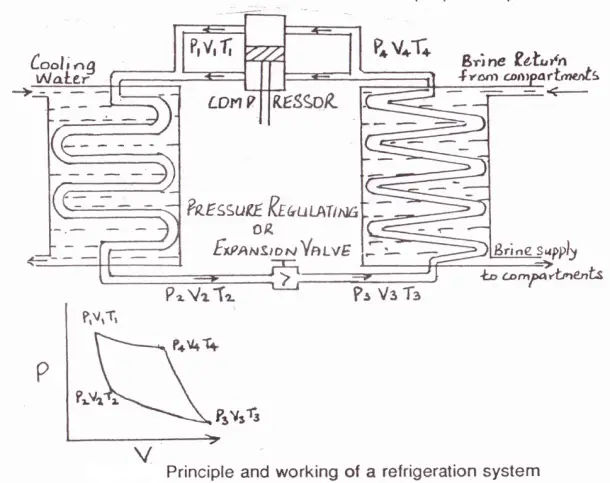 P₁V₁T₁
P₄ V₄T₄
Cooling
Water
Brine Return
from compartments
COMP RESSOR
PRESSURE REGULATING
OR
EXPANSION VALVE
Brine supply
to compartments
P₂ V₂ T₂
P₃ V₃ T₃
P₁V₁T₁
P₄V₄T₄
P
P₂V₂T₂
P₃V₃T₃
V
Principle and working of a refrigeration system